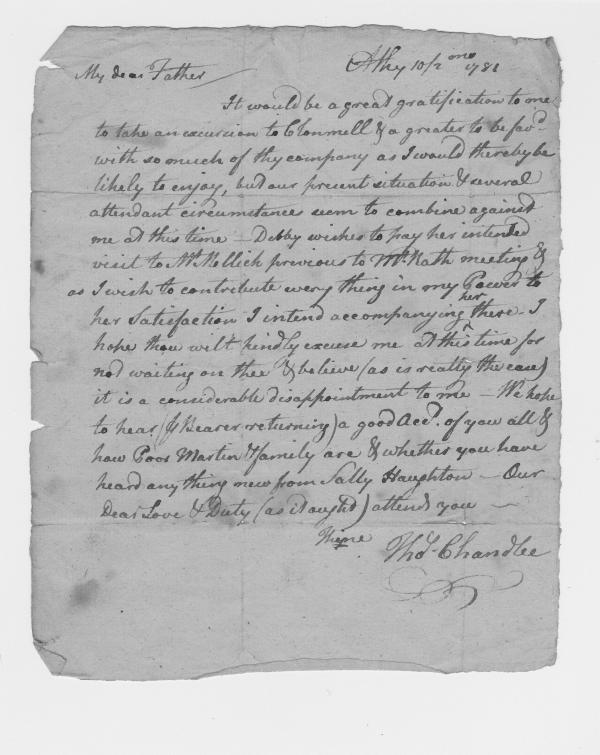 My dear Father
Athy 10/2 mo 1781
It would be a great gratification to me
to take an excursion to Clonmell & a greater to be favd.
with so much of thy company as I would thereby be
likely to enjoy, but our present situation & several
attendant circumstances seem to combine against
me at this time – Debby wishes to pay her intended
visit to previous to Mt. Rath meeting &
as I wish to contribute every thing in my Power to
her Satisfaction I intend accompanying her there. I
hope thou wilt kindly excuse me at this time for
not waiting on thee & believe (as is really the case)
it is a considerable disappointment to me – We hope
to hear (pr Bearer returning) a good Acct. of you all &
how Poor Martin & family are & whether you have
heard any thing new from Sally Haughton – Our
Dear Love & Duty (as it ought) attends you –
Thine
Thos. Chandlee